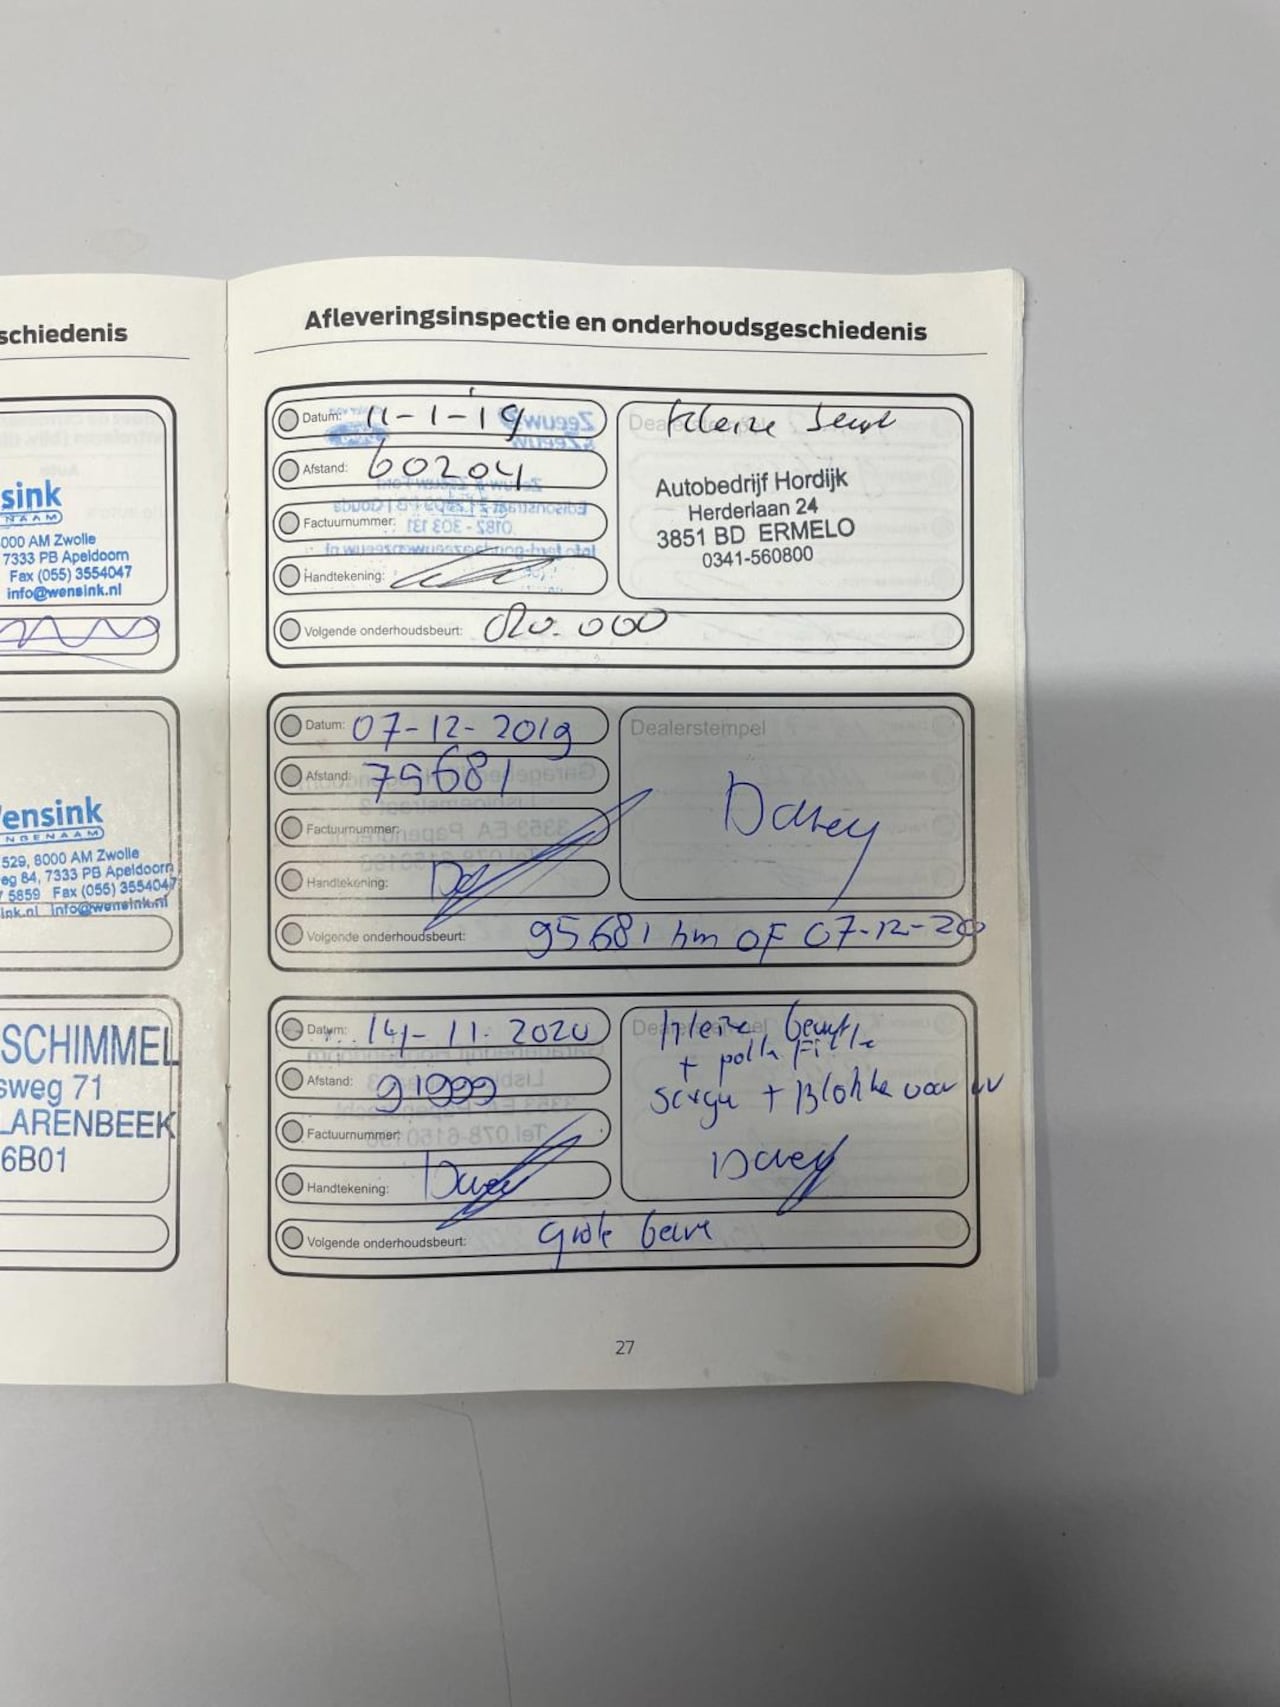 schiedenis
sink
NAAM
000 AM Zwolle
7333 PB Apeldoorn
Fax (055) 3554047
info@wensink.nl
ensink
NGENAAM
529, 8000 AM Zwolle
eg 84, 7333 PB Apeldoorn
5859 Fax (055) 3554047
ink.nl info@wensink.nl
SCHIMMEL
sweg 71
LARENBEEK
6B01
Afleveringsinspectie en onderhoudsgeschiedenis
Datum: 11-1-19
Afstand: 60204
Factuurnummer:
Handtekening:
Volgende onderhoudsbeurt: 80.000
Dealerstempel
Kleine beurt
Autobedrijf Hordijk
Herderlaan 24
3851 BD ERMELO
0341-560800
Zeeuw &
Zeeuw
Edisonstraat
Gouda
0182 - 303 131
Datum: 07-12-2019
Afstand: 79681
Factuurnummer:
Handtekening:
Volgende onderhoudsbeurt: 95681 km OF 07-12-20
Dealerstempel
3353 EA Papendrecht
Datum: 14-11-2020
Afstand: 91999
Factuurnummer:
Handtekening:
Volgende onderhoudsbeurt: grote beurt
Dealerstempel
Kleine beurt
+ pollen Filter
+ Blokke voor
Tel.078-6150196
27